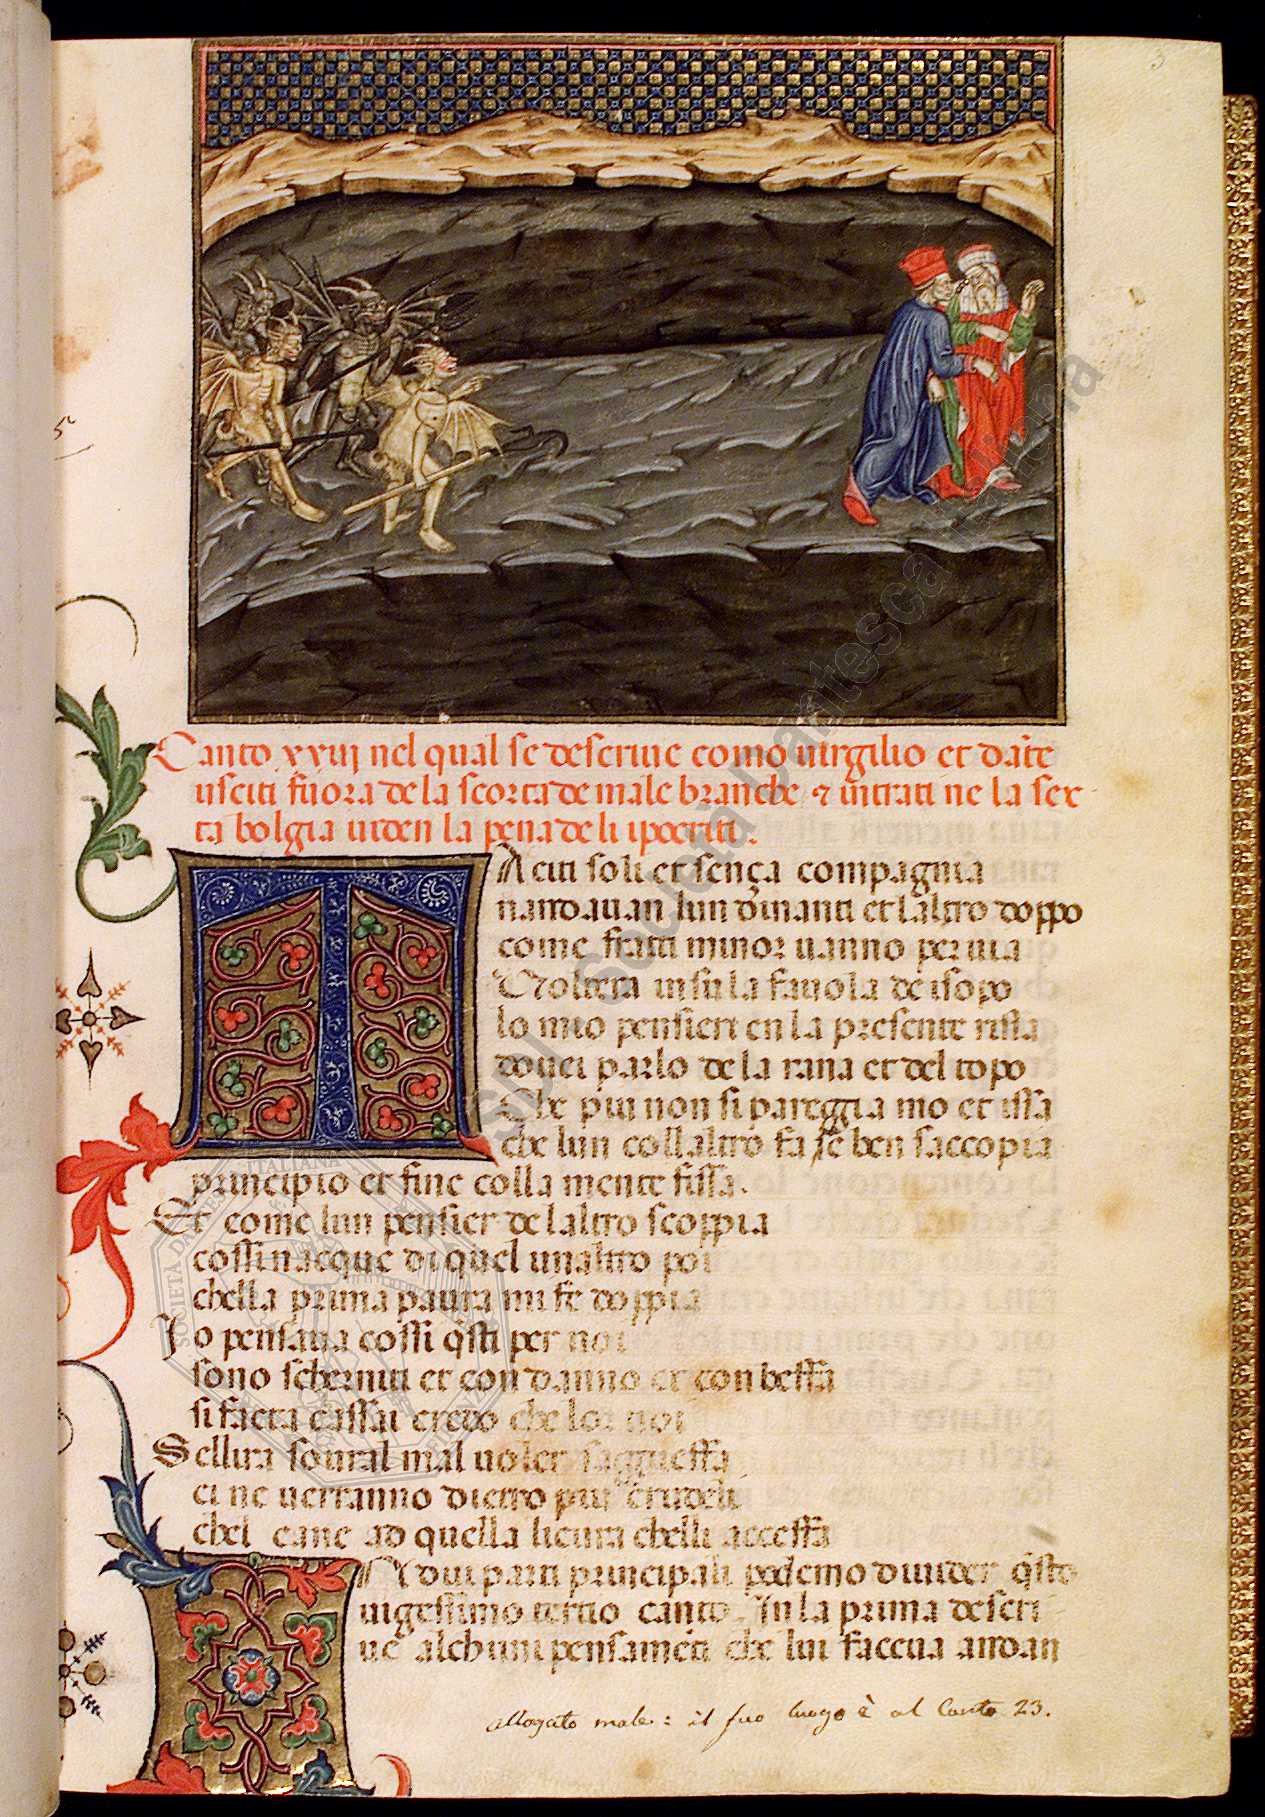 3
5
Canto xxiij nel qual se descriue como uirgilio et dāte
usciti fuora de la scorta de male branche ⁊ intrati ne la sex
ta bolgia uiden la pena de li ipocriti.
Taciti soli et sença compagnia
nandauan lun dinanti et laltro doppo
come frati minor uanno per uia
Uolt era in su la fauola de isopo
lo mio pensier en la presente rissa
douei parlo de la rana et del topo
Che piu non si pareggia mo et issa
che lun collaltro fa se ben saccopia
principio et fine colla mente fissa.
Et come lun pensier de laltro scoppia
cossi nacque di quel unaltro poi
chella prima paura mi fe doppia
Io pensaua cossi q̄sti per noi
sono scherniti et con danno et con beffa
si facta cassai credo che lor noi
Sellira soural mal uoler saggueffa
ei ne uerranno dietro piu crudeli
chel cane ad quella lieura chelli acceffa
IN dui parti principali podemo diuider q̄sto
uigessimo tertio canto. In la prima descri
ue alchuni pensamēti che lui faceua andan
allogato male: il suo luogo è al Canto 23.
SDI Società Dantesca Italiana
SOCIETÀ DANTESCA ITALIANA